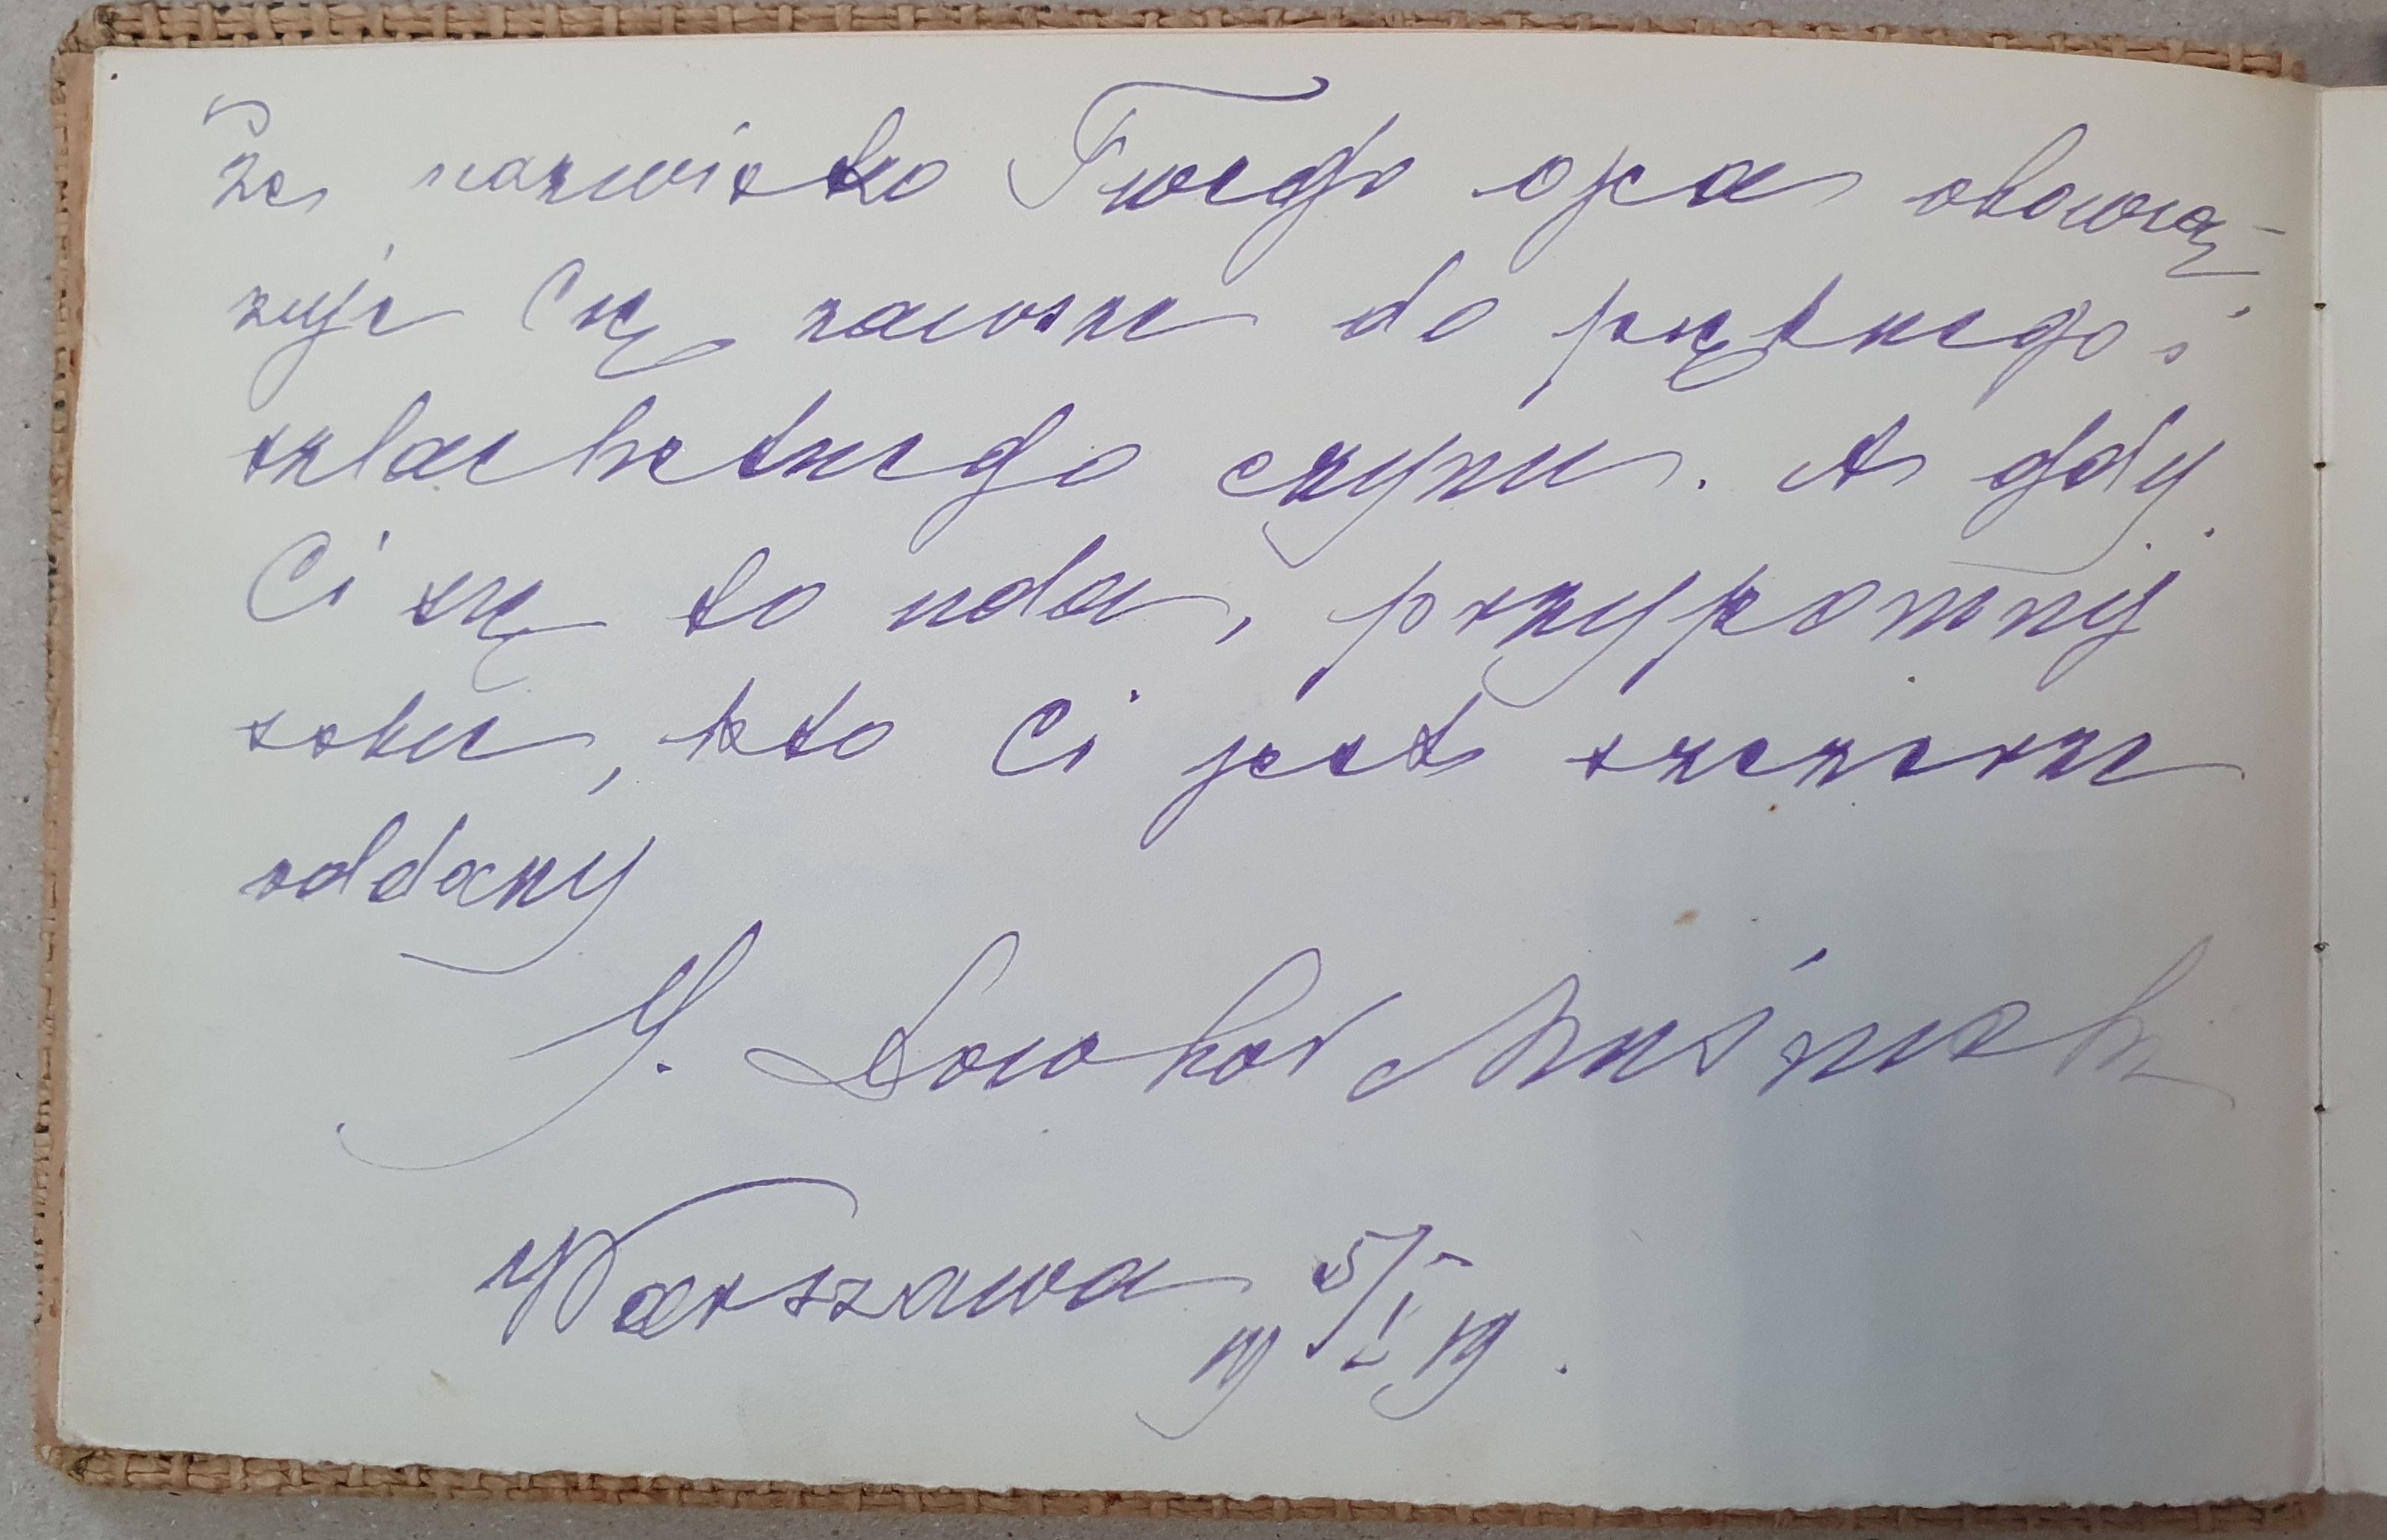 że nazwisko Twego ojca obowią-
zuje Cię zawsze do pięknego i
szlachetnego czynu. A gdy
Ci się to uda, przypomnij
sobie, kto Ci jest szczerze
oddany
J. Dowbor Muśnicki
Warszawa 19 5/I 19.